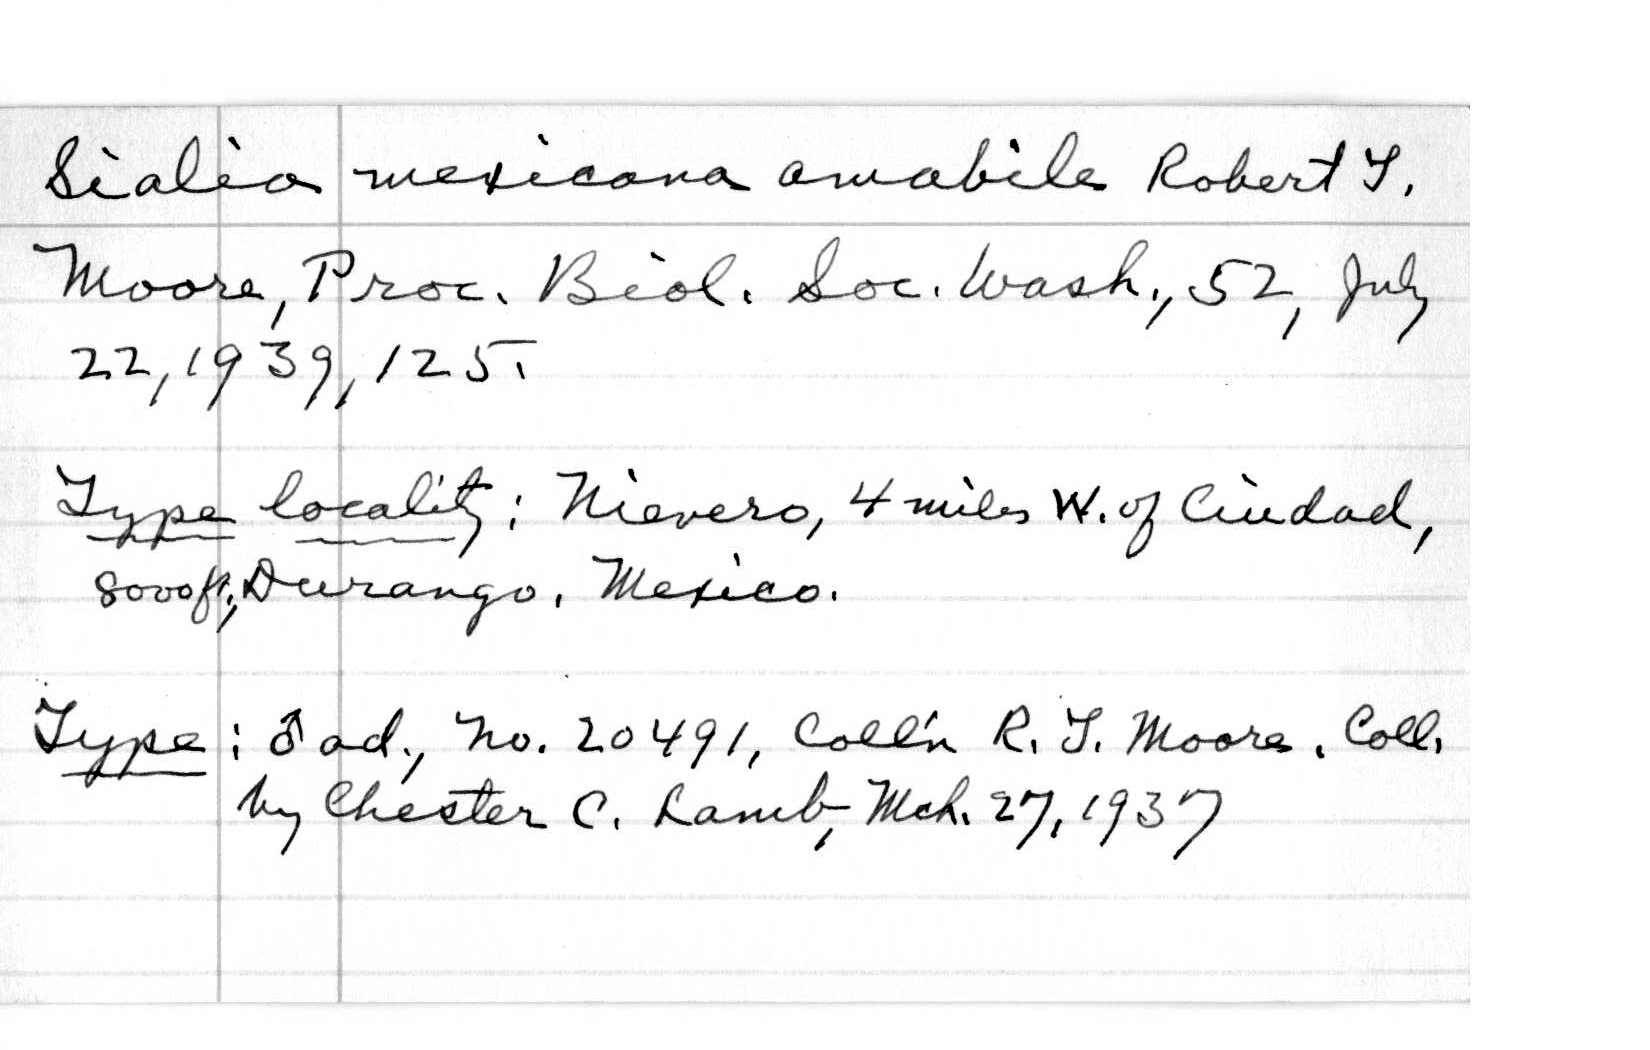 Sialia mexicana amabile Robert T.
Moore, Proc. Biol. Soc. Wash., 52, July
22, 1939, 125.
Type locality: Nievero, 4 miles W. of Ciudad,
8000ft., Durango, Mexico.
Type: ♂ ad., no. 20491, Coll'n R. T. Moore. Coll.
by Chester C. Lamb, Mch. 27, 1937